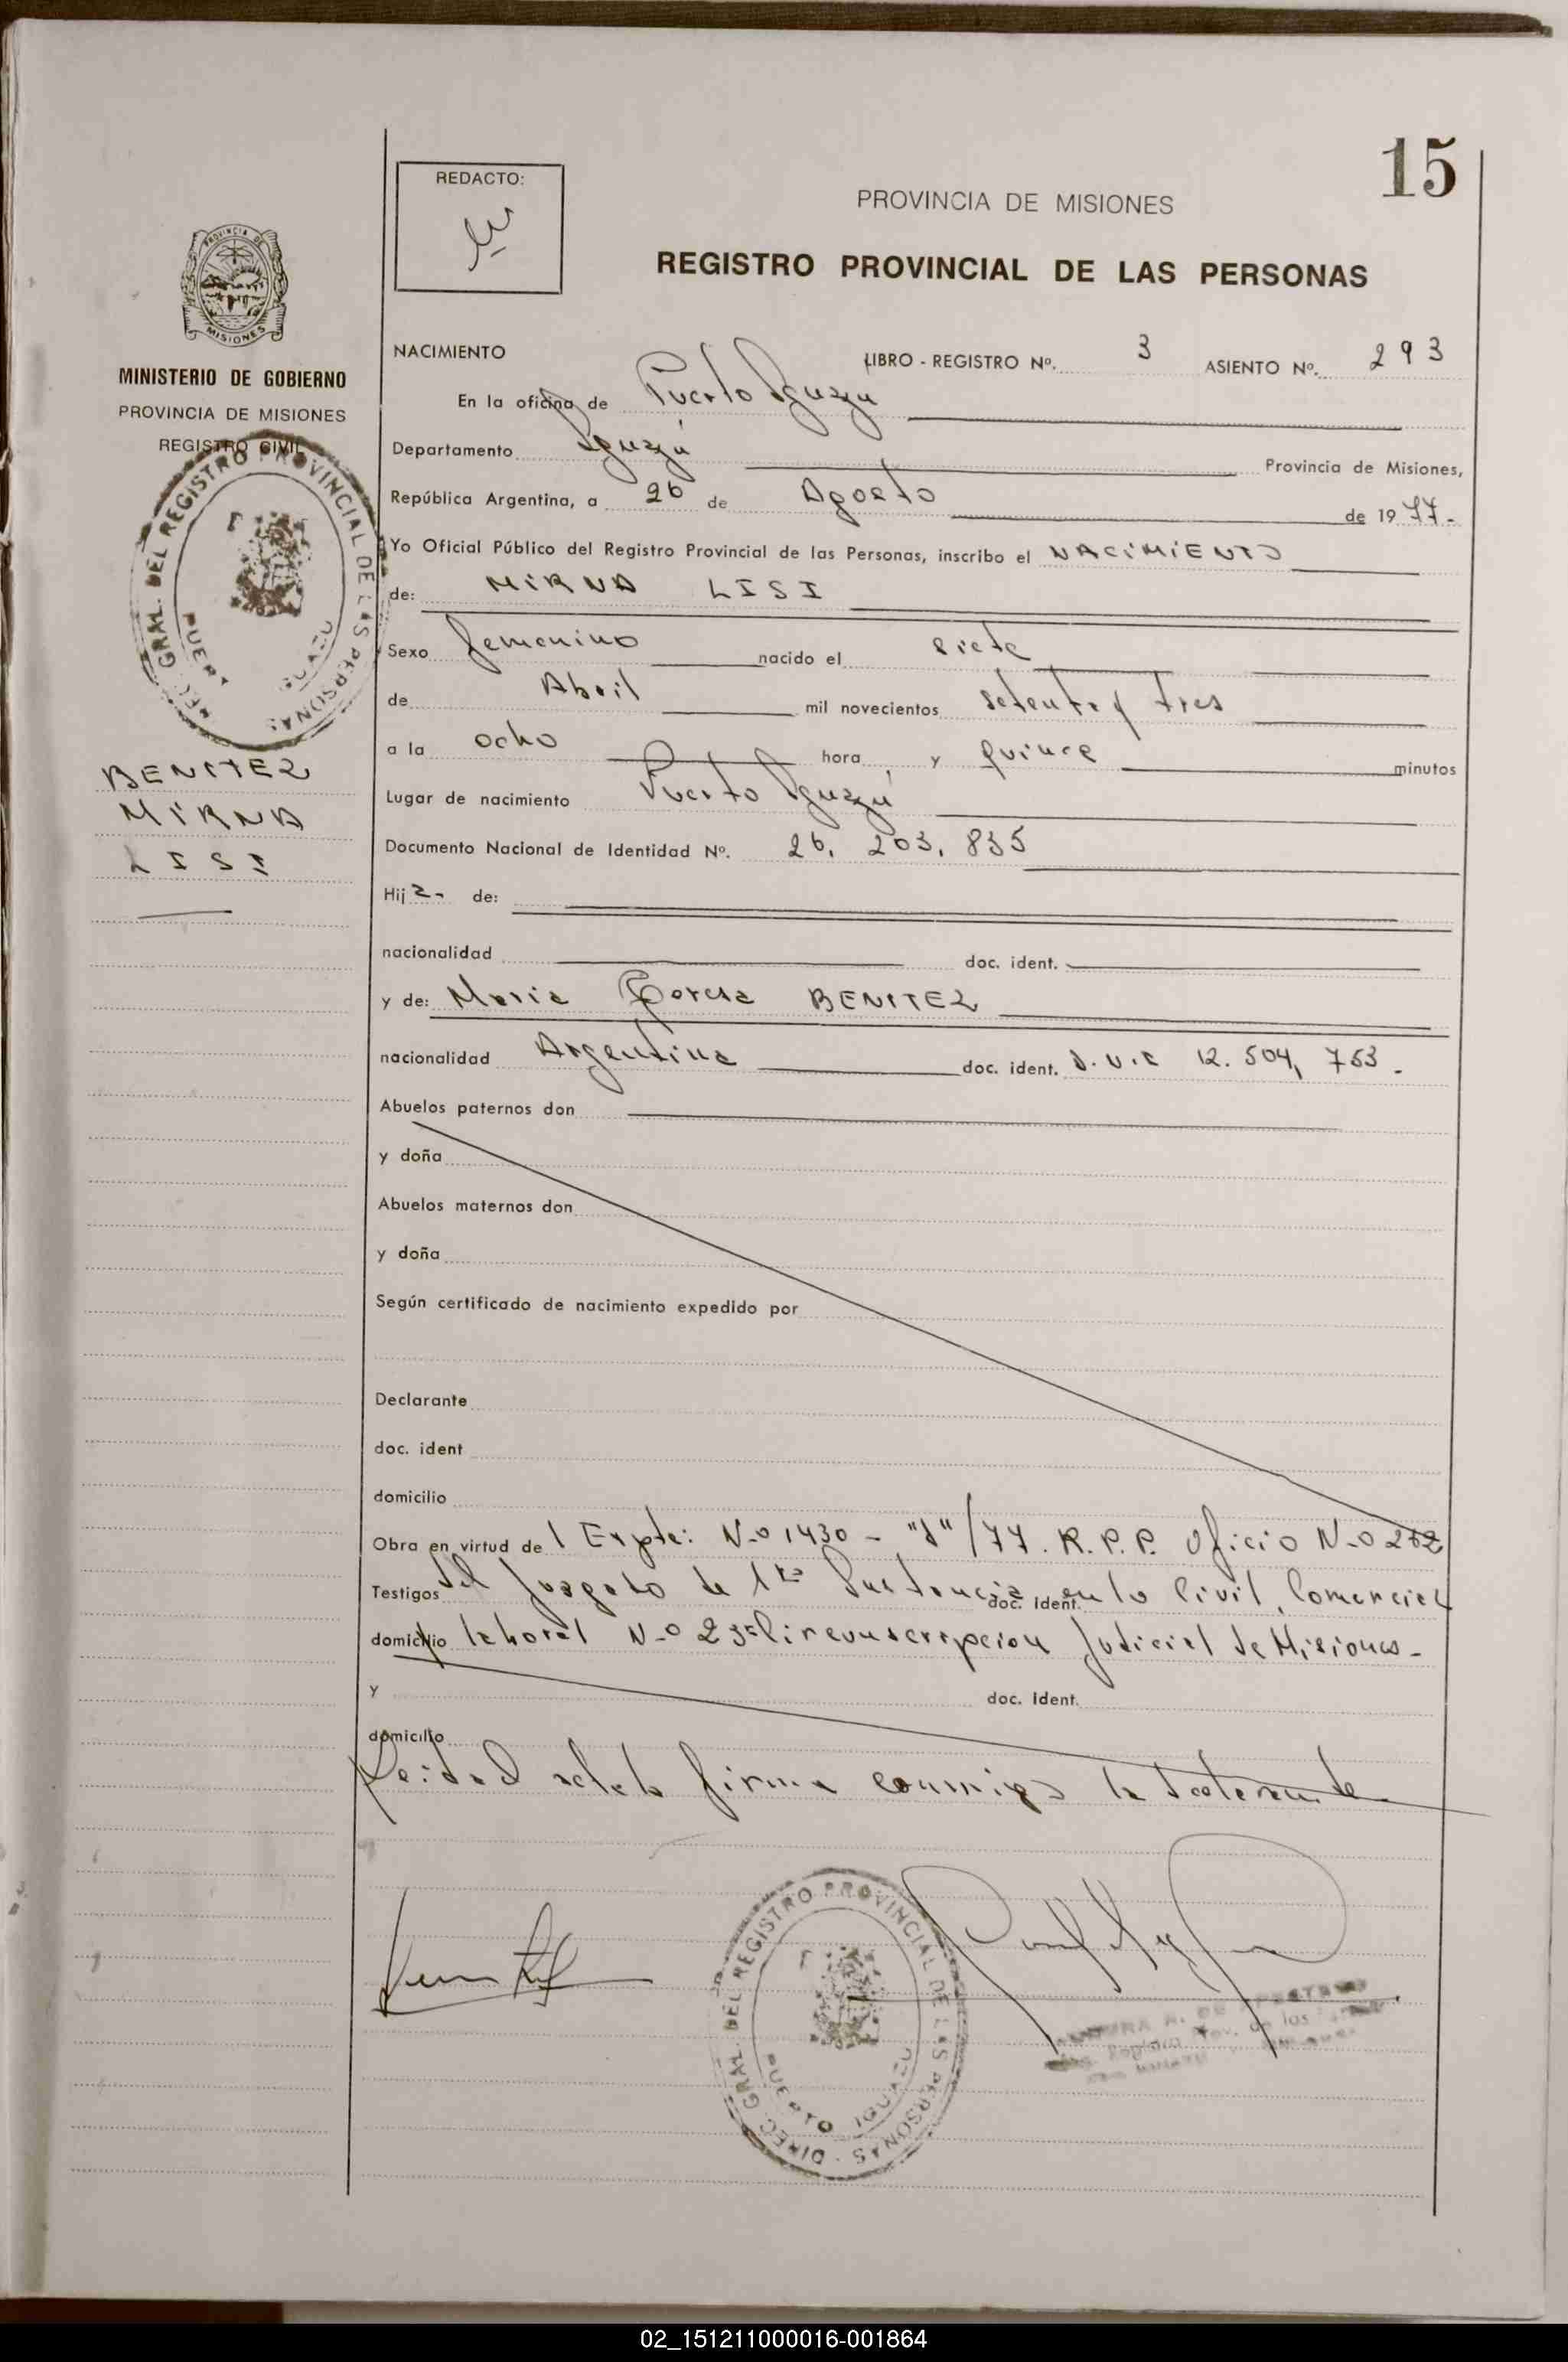 15
REDACTO:
PROVINCIA DE MISIONES
REGISTRO PROVINCIAL DE LAS PERSONAS
PROVINCIA DE
MISIONES
MINISTERIO DE GOBIERNO
PROVINCIA DE MISIONES
REGISTRO CIVIL
NACIMIENTO LIBRO - REGISTRO Nº. 3 ASIENTO Nº. 293
En la oficina de Puerto Iguazu
Departamento Iguazú Provincia de Misiones,
República Argentina, a 26 de Agosto de 1977.-
Yo Oficial Público del Registro Provincial de las Personas, inscribo el NACIMIENTO
de: MIRNA LISI
Sexo femenino nacido el siete
de Abril mil novecientos setenta y tres
a la ocho hora y quince minutos
Lugar de nacimiento Puerto Iguazú
Documento Nacional de Identidad Nº. 26.203.835
Hija- de:
nacionalidad doc. ident.
y de: Maria Teresa BENITEZ
nacionalidad Argentina doc. ident. 12.504,763.-
Abuelos paternos don
y doña
Abuelos maternos don
y doña
Según certificado de nacimiento expedido por
Declarante
doc. ident
domicilio
Obra en virtud del Expte: Nº 1430 - /77. R.P.P. Oficio Nº
Testigos del Juzgado de 1ra Instancia doc. Ident. en lo Civil, Comercial
domicilio laboral Nº 2 3ª Circunscripcion Judicial de Misiones-
y doc. Ident.
domicilio
Leida el acta la firma conmigo la
BENITEZ
MIRNA
LISI
DIREC. GRAL. DEL REGISTRO PROVINCIAL DE LAS PERSONAS
PUERTO IGUAZU
DIREC. GRAL. DEL REGISTRO PROVINCIAL DE LAS PERSONAS
PUERTO IGUAZU
02_151211000016-001864